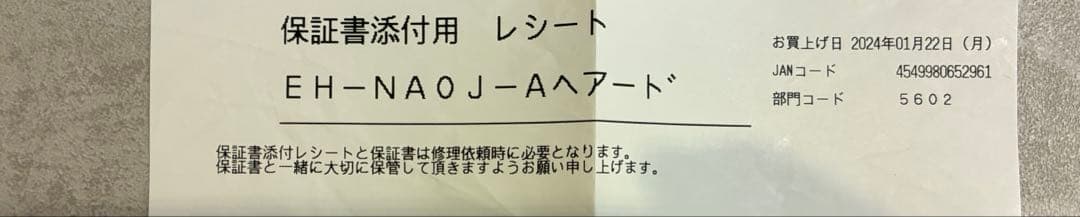 保証書添付用 レシート
EH-NA0J-Aヘアード
お買上げ日 2024年01月22日(月)
JANコード 4549980652961
部門コード 5602
保証書添付レシートと保証書は修理依頼時に必要となります。
保証書と一緒に大切に保管して頂きますようお願い申し上げます。